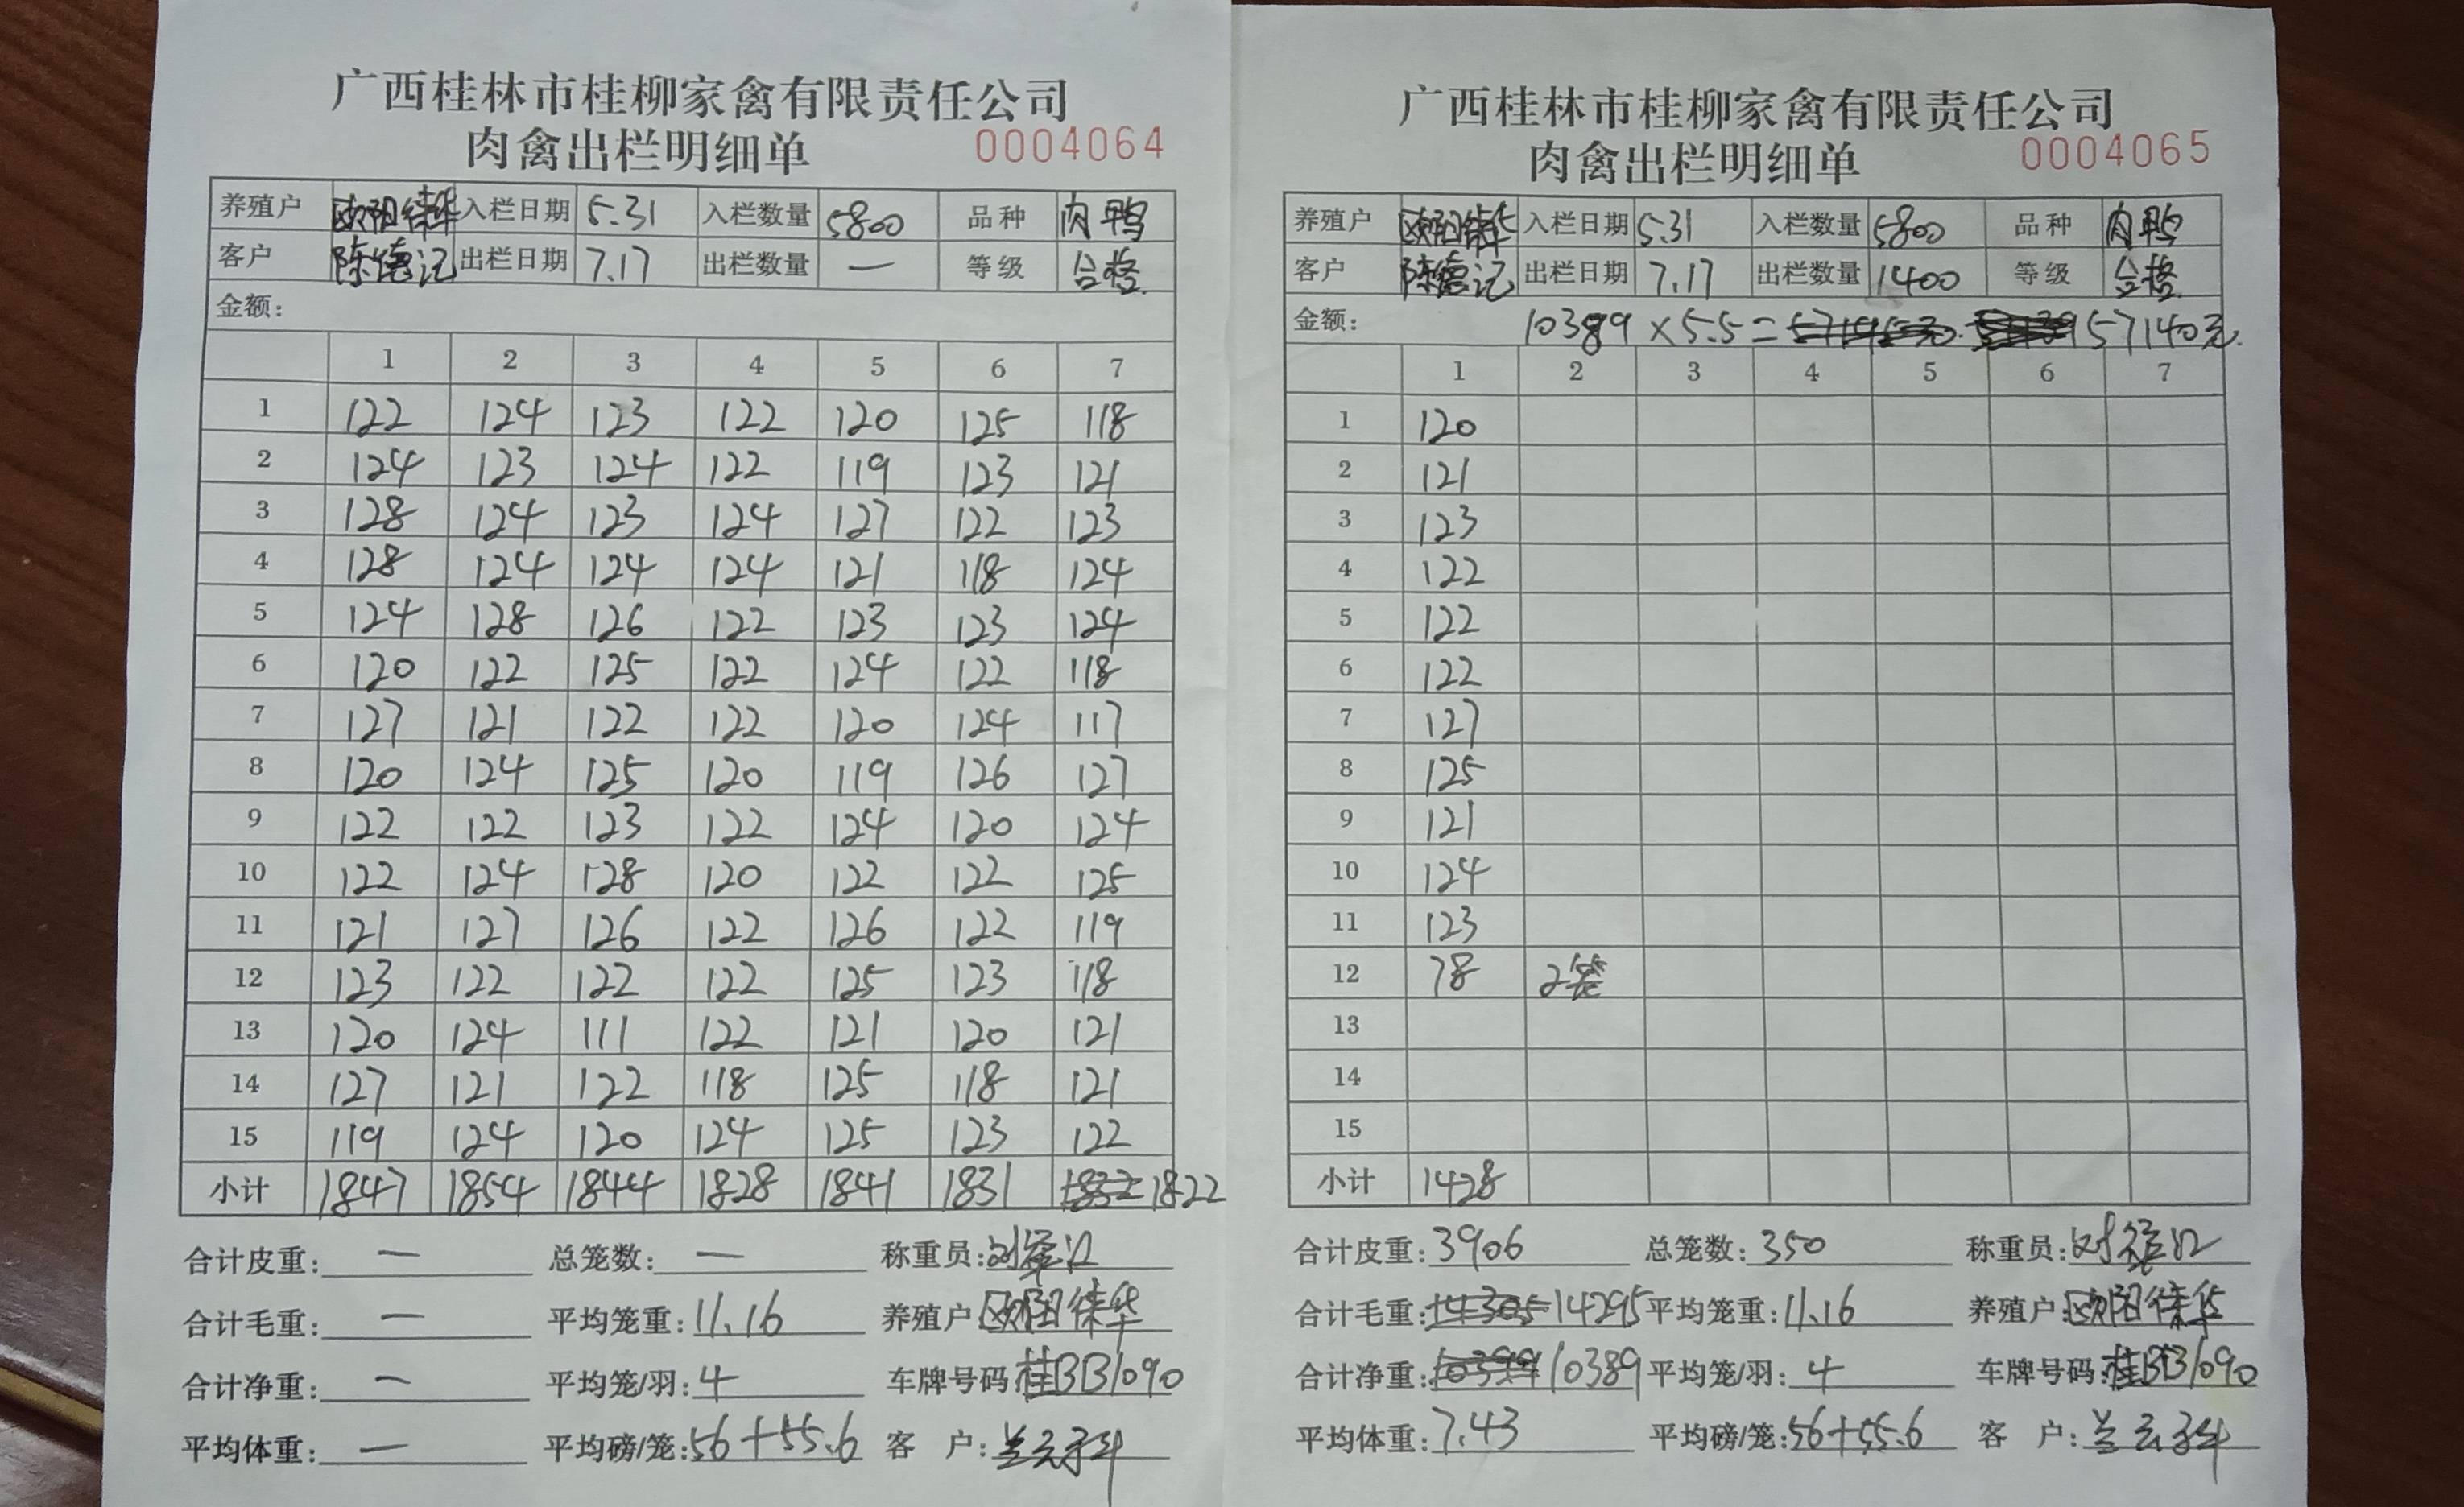 广西桂林市桂柳家禽有限责任公司
肉禽出栏明细单 0004064
养殖户 欧阳 华 入栏日期 5.31 入栏数量 5800 品种 肉鸭
客户 陈德记 出栏日期 7.17 出栏数量 — 等级 合格
金额:
1 2 3 4 5 6 7
1 122 124 123 122 120 125 118
2 124 123 124 122 119 123 121
3 128 124 123 124 127 122 123
4 128 124 124 124 121 118 124
5 124 128 126 122 123 123 124
6 120 122 125 122 124 122 118
7 127 121 122 122 120 124 117
8 120 124 125 120 119 126 127
9 122 122 123 122 124 120 124
10 122 124 128 120 122 122 125
11 121 127 126 122 126 122 119
12 123 122 122 122 125 123 118
13 120 124 111 122 121 120 121
14 127 121 122 118 125 118 121
15 119 124 120 124 125 123 122
小计 1847 1854 1844 1828 1841 1831 1832 1822
合计皮重: — 总笼数: — 称重员:刘 江
合计毛重: — 平均笼重: 11.16 养殖户:欧阳 华
合计净重: — 平均笼/羽: 4 车牌号码:桂BB1090
平均体重: — 平均磅/笼:56+55.6 客 户:
广西桂林市桂柳家禽有限责任公司
肉禽出栏明细单 0004065
养殖户 欧阳 华 入栏日期 5.31 入栏数量 5800 品种 肉鸭
客户 陈德记 出栏日期 7.17 出栏数量 1400 等级 合格
金额: 10389×5.5= 57140元.
1 2 3 4 5 6 7
1 120
2 121
3 123
4 122
5 122
6 122
7 127
8 125
9 121
10 124
11 123
12 78 2袋
13
14
15
小计 1428
合计皮重: 3906 总笼数: 350 称重员:刘 江
合计毛重:14305 14295 平均笼重: 11.16 养殖户:欧阳 华
合计净重:10399 10389 平均笼/羽: 4 车牌号码:桂BB1090
平均体重: 7.43 平均磅/笼:56+55.6 客 户: